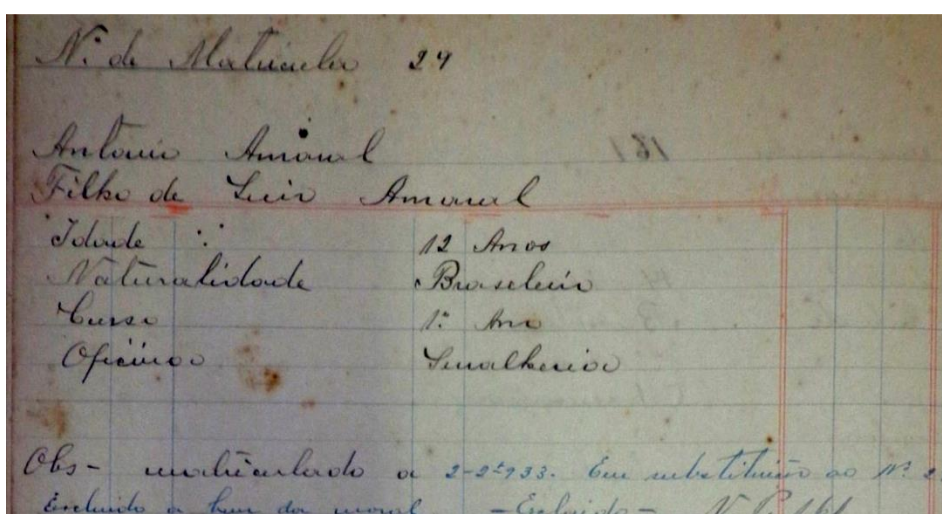 Nº de Matricula 29
Antonio Amaral
Filho de Luiz Amaral
Idade 12 Anos
Naturalidade Brasileiro
Curso 1º Ano
Oficina Serralheria
Obs- matriculado a 2-2º933. Em substituição ao Nº 2
Excluido a bem da moral - Excluido -